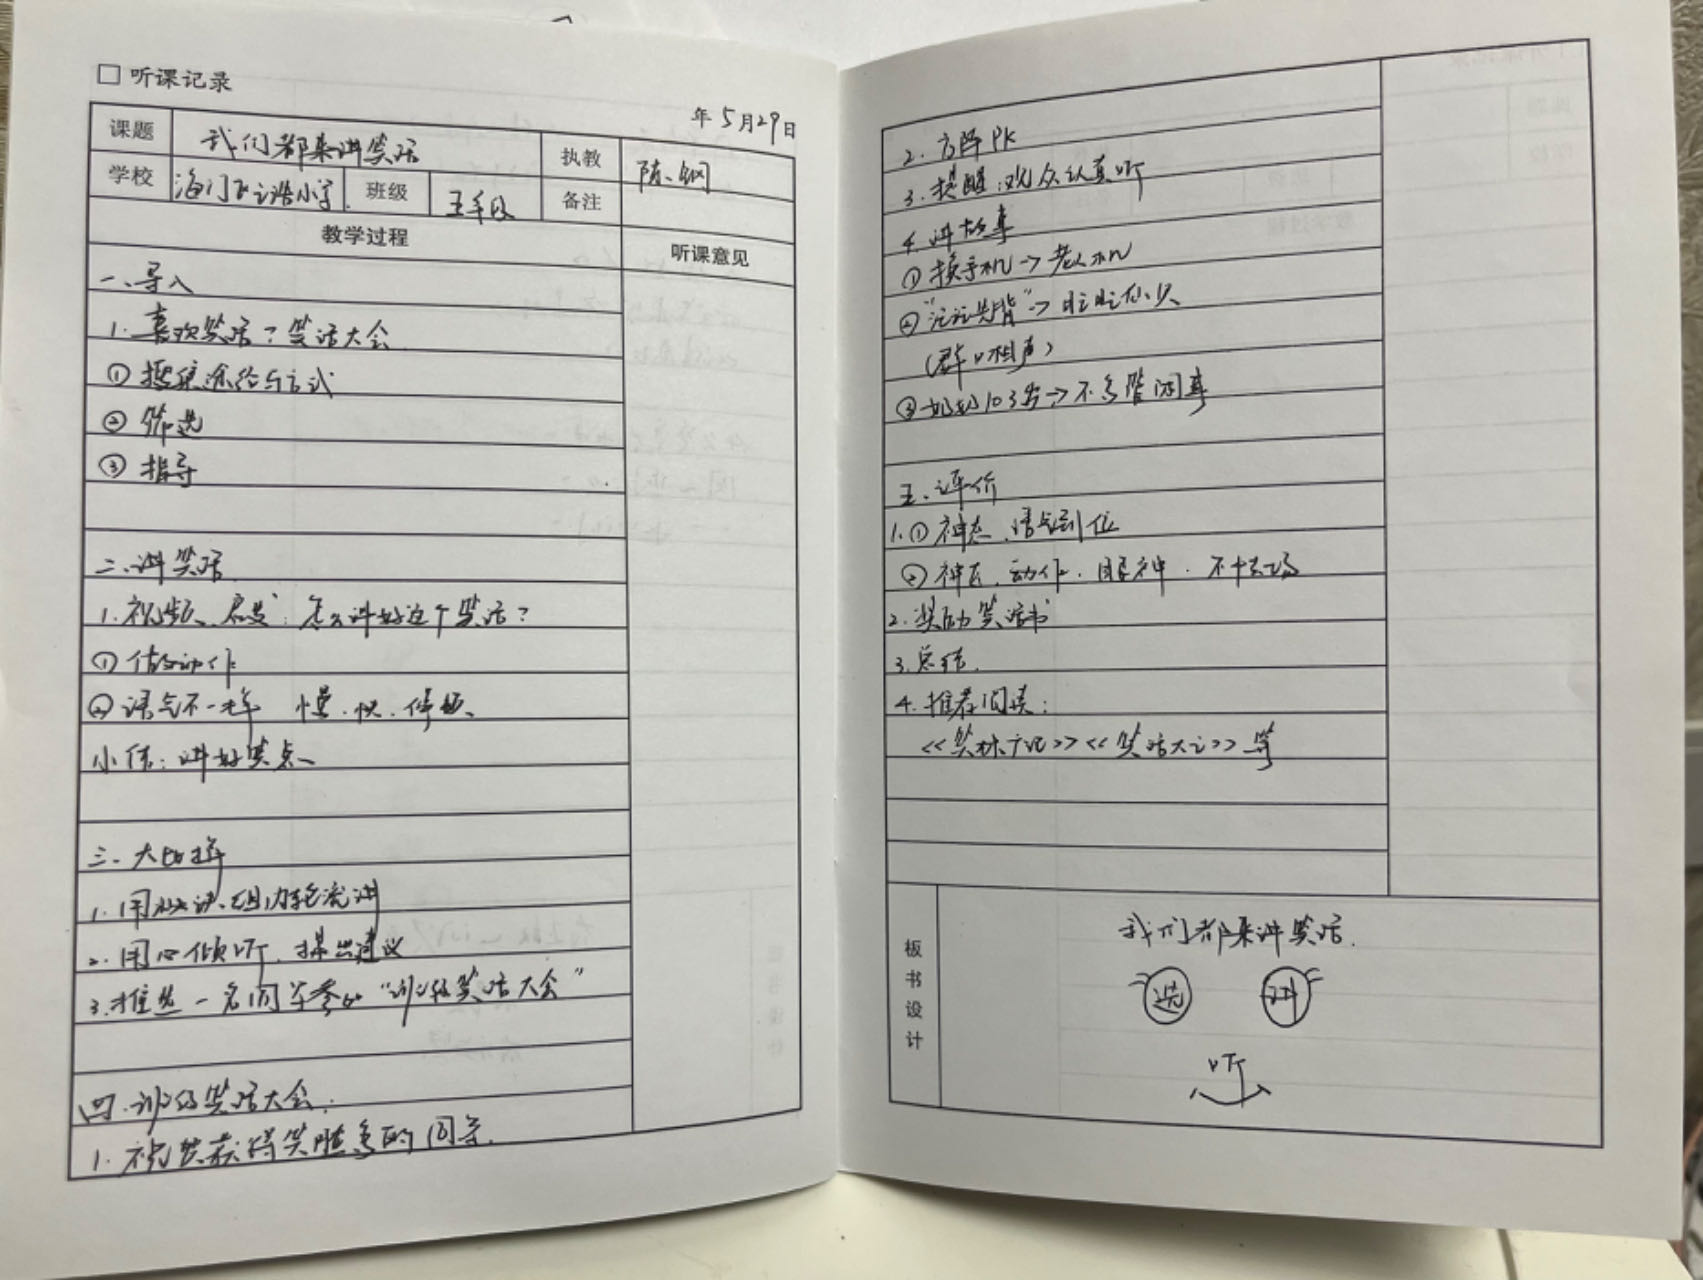 □ 听课记录
年 5月29日
课题 我们都来讲笑话 执教 陈 钢
学校 海门 小学 班级 五年段 备注
教学过程 听课意见
一、导入
1. 喜欢笑话？笑话大会
① 搜集途径与方式
② 筛选
③ 指导
二、讲笑话
1. 视频、启发：怎么讲好这个笑话？
① 做动作
② 语气不一样 慢、快、停顿、
小结：讲好笑点
三、大比拼
1. 用 组内轮流讲
2. 用心倾听、提出建议
3. 推选一名同学参加“班级笑话大会”
四、班级笑话大会：
1. 祝贺获得笑脸多的同学、
2. 方阵PK
3. 提醒：观众认真听
4. 讲故事
① 换手机→老人机
②
（群口相声）
③ 奶奶103岁→不多管闲事
五、评价
1. ① 神态、语气到位
② 动作、眼神、不怯场
2. 奖励笑话书
3. 总结.
4. 推荐阅读：
<<笑林广记>><<笑话大王>>等
板书设计
我们都来讲笑话.
选 讲
听